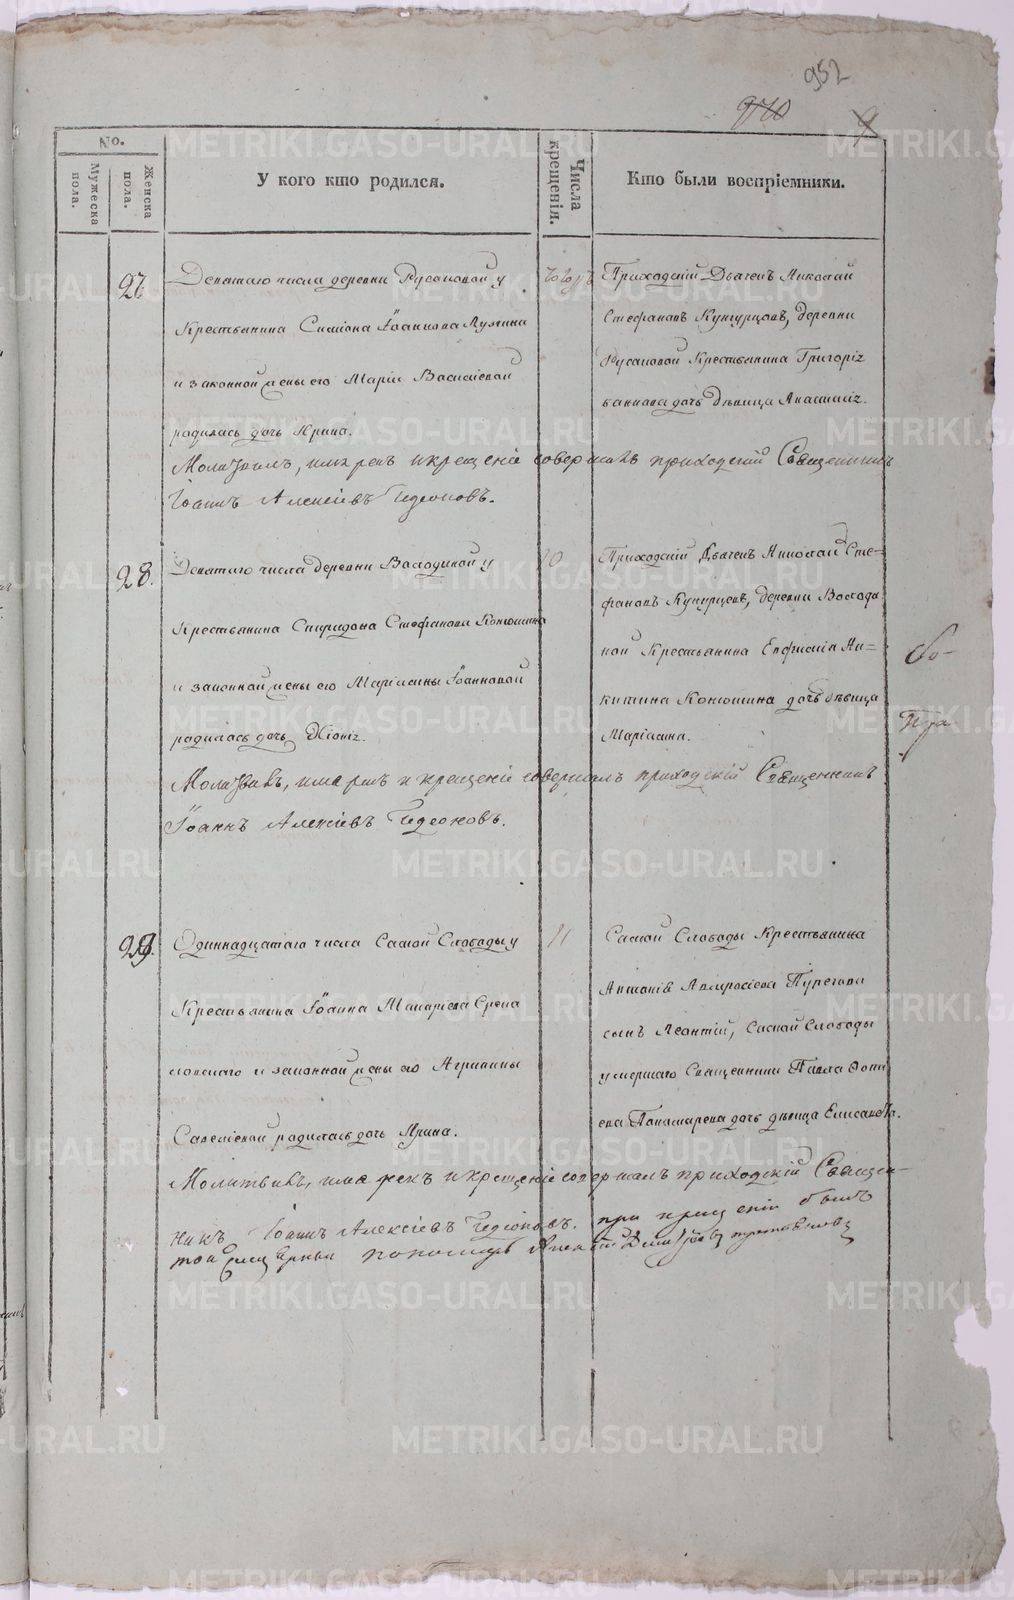 952
970
9
No.
Мужеска пола.
Женска пола.
У кого кто родился.
Числа крещенія.
Кто были воспріемники.
27
Девятаго числа деревни Русаковой у
Крестьянина Симіона Іоаннова
и законной жены его Маріи Василіевой
родилась дочь Ирина.
Приходскій Дьячекъ Николай
Стефановъ Кунгурцовъ, деревни
Русаковой Крестьянина Григоріа
дочь дѣвица Анастасіа.
Молитвилъ, имя рекъ и крещеніе совершалъ приходскій Священникъ
Іоаннъ Алексіевъ Гедеоновъ.
28.
Девятаго числа деревни Володиной у
Крестьянина Спиридона Стефанова Конюшина
и законной жены его Маріамны Іоанновой
родилась дочь Хіоніа.
10
Приходскій Дьячекъ Николай Сте=
фановъ Кунгурцевъ, деревни Володи
ной Крестьянина Евфимія Ни=
китина Конюшина дочь дѣвица
Маріамна.
Молитвилъ, имя рекъ и крещеніе совершалъ приходскій Священникъ
Іоаннъ Алексіевъ Гедеоновъ.
29.
Одиннадцатаго числа Самой Слободы у
Крестьянина Іоанна Макаріева
и законной жены его Агрипины
Савеліевой родилась дочь Ирина.
11
Самой Слободы Крестьянина
Антонія Амвросіева
сынъ Леонтій, Самой Слободы
умершаго Священника Павла
Понамарева дочь дѣвица Елисавета.
Молитвилъ, имя рекъ и крещеніе совершалъ приходскій Священ-
никъ Іоаннъ Алексіевъ Гедеоновъ. при крещеніи былъ
той же Церкви пономарь Алексій
METRIKI.GASO-URAL.RU